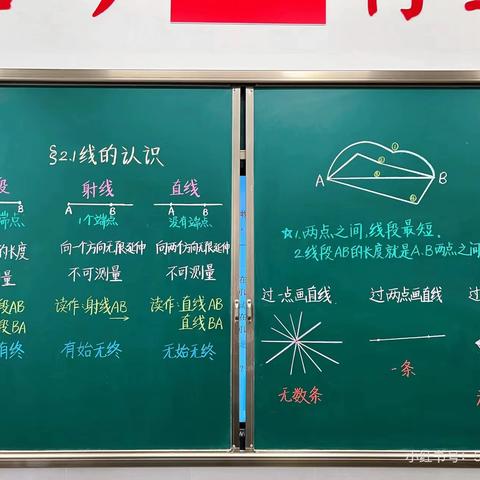 §2.1 线的认识
段
A B
端点
的长度
量
段AB
段BA
有终
射线
A B
1个端点
向一个方向无限延伸
不可测量
读作:射线AB
有始无终
直线
A B
没有端点
向两个方向无限延伸
不可测量
读作:直线AB
直线BA
无始无终
①
②
③
④
A B
☆1.两点之间,线段最短.
2.线段AB的长度就是A.B两点之间
过一点画直线
无数条
过两点画直线
一条
过
小红书号:5